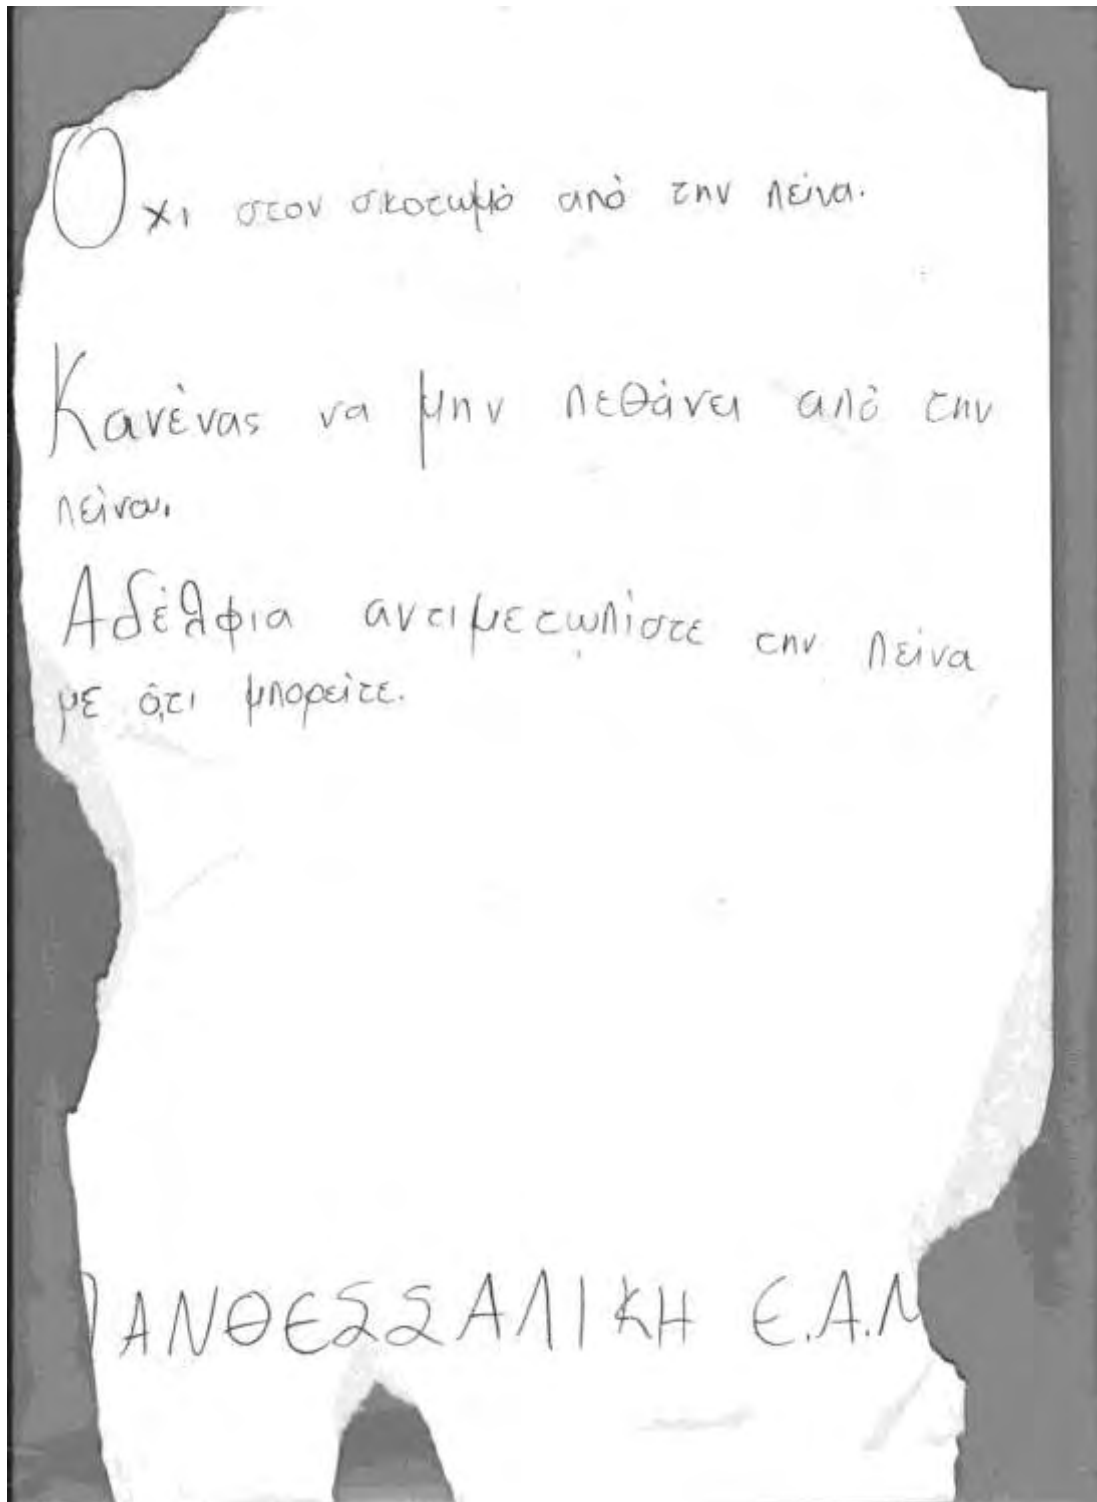 Όχι στον σκοτωμό από την πείνα.
Κανένας να μην πεθάνει από την
πείνα.
Αδέλφια αντιμετωπίστε την πείνα
με ό,τι μπορείτε.
ΠΑΝΘΕΣΣΑΛΙΚΗ Ε.Α.Μ